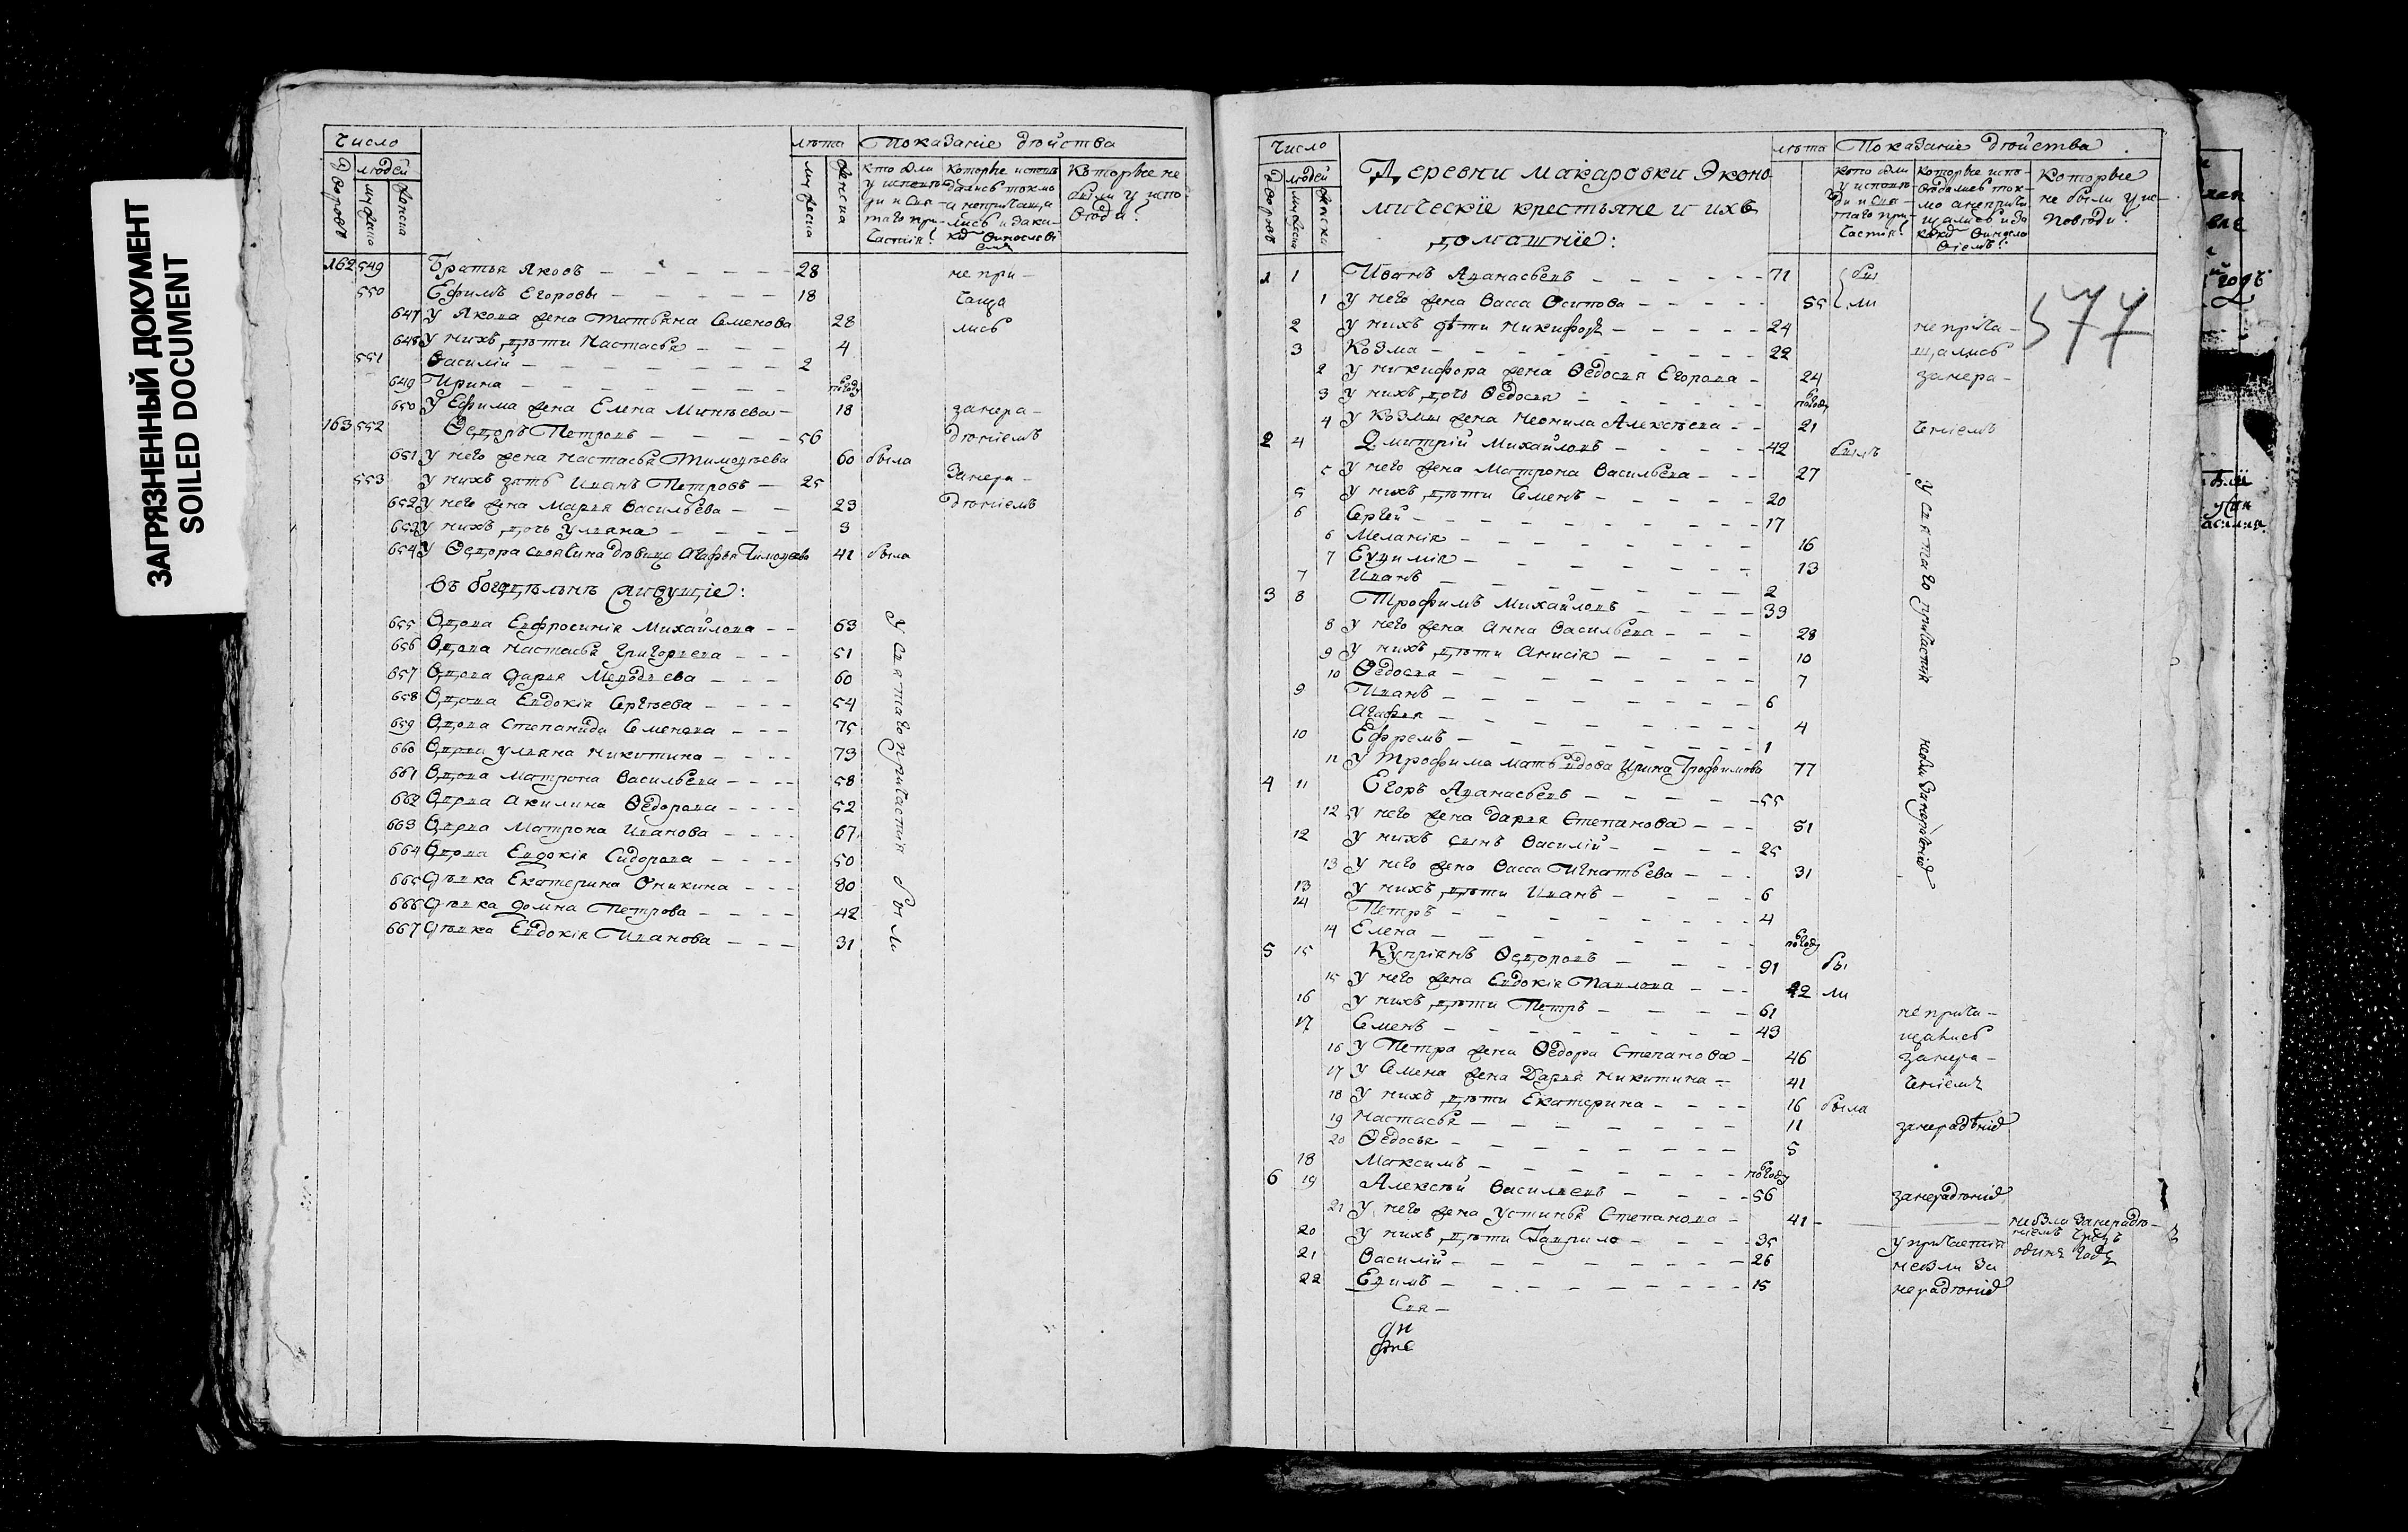 ЗАГРЯЗНЕННЫЙ ДОКУМЕНТ
SOILED DOCUMENT
Число
лѣта Показаніе дѣйства
Дворовъ людей
мужеска женска
мужеска женска
Которые не были у исповѣди?
162 549 Братья Яковъ 28 не при-
550 Ефимъ Егоровы 18 чаща
647 У Якова жена Татьяна Семенова 28 лись
648 У нихъ дѣти Настасья 4
551 Василій 2
649 Ирина погоду
650 У Ефима жена Елена Минѣева 18 занера-
163 552 Ѳедоръ Петровъ 56 дѣніемъ
651 У него жена Настасья Тимоѳѣева 60 была
553 У нихъ зять Иванъ Петровъ 25 Занера-
652 У него жена Марья Васильева 23 дѣніемъ
653 У нихъ дочь Ульяна 3
654 У Ѳедора своячина дѣвица Агафья 41 была
Въ богадѣльнѣ живущіе:
655 Вдова Евфросинія Михайлова 63
656 Вдова Настасья Григорьева 51
657 Вдова Дарья Меѳодьева 60
658 Вдова Евдокія Сергѣева 54
659 Вдова Степанида Семенова 75
660 Вдова Ульяна Никитина 73
661 Вдова Матрона Васильева 58
662 Вдова Акилина Ѳедорова 52
663 Вдова Матрона Иванова 67
664 Вдова Евдокія Сидорова 50
665 Дѣвка Екатерина Оникина 80
666 Дѣвка Домна Петрова 42
667 Дѣвка Евдокія Иванова 31
У святаго причастія были
Число
лѣта Показаніе дѣйства
Дворовъ людей
мужеска женска
Деревни Макаровки Эконо-
мическіе крестьяне и ихъ
домашніе:
Которые не были у исповѣди?
577
1 1 Иванъ Аѳанасьевъ 71 бы
1 У него жена Васса Осипова 55 ли
2 У нихъ дѣти Никифоръ 24 не прича-
3 Козма 22 щались
2 У Никифора жена Ѳедосья Егорова 24 занера-
3 У нихъ дочь Ѳедосья погоду
4 У Козмы жена Неонила Алексѣева 21 ченіемъ
2 4 Дмитрій Михайловъ 42 былъ
5 У него жена Матрона Васильева 27
5 У нихъ дѣти Семенъ 20
6 Сергей 17
6 Меланія 16
7 Евѳимія 13
7 Иванъ 2
3 8 Трофимъ Михайловъ 33
8 У него жена Анна Васильева 28
9 У нихъ дѣти Анисія 10
10 Ѳедосья 7
9 Иванъ 6
Агафья 4
10 Ефремъ 1
11 У Трофима мать вдова Ирина Трофимова 77
4 11 Егоръ Аѳанасьевъ 55
12 У него жена Дарья Степанова 51
12 У нихъ сынъ Василій 25
13 У него жена Васса Игнатьева 31
13 У нихъ дѣти Иванъ 6
14 Петръ 4
14 Елена погоду
У святаго причастія небыли занерадѣніе
5 15 Купріянъ Ѳедоровъ 91 бы
15 У него жена Евдокія Павлова 42 ли
16 У нихъ дѣти Петръ 61 не прича-
17 Семенъ 43 щались
16 У Петра жена Ѳедора Степанова 46 занера-
17 У Семена жена Дарья Никитина 41 ченіемъ
18 У нихъ дѣти Екатерина 16 была
19 Настасья 11 занерадѣніе
20 Ѳедосья 5
18 Максимъ погоду
6 19 Алексѣй Васильевъ 56 занерадѣніе
21 У него жена Устинья Степанова 41 небыла занерадѣ-
20 У нихъ дѣти Гаврило 35 у причастія ніемъ чрезъ
21 Василій 26 небыли за одинъ годъ
22 Ефимъ 15 нерадѣніе
Свя-